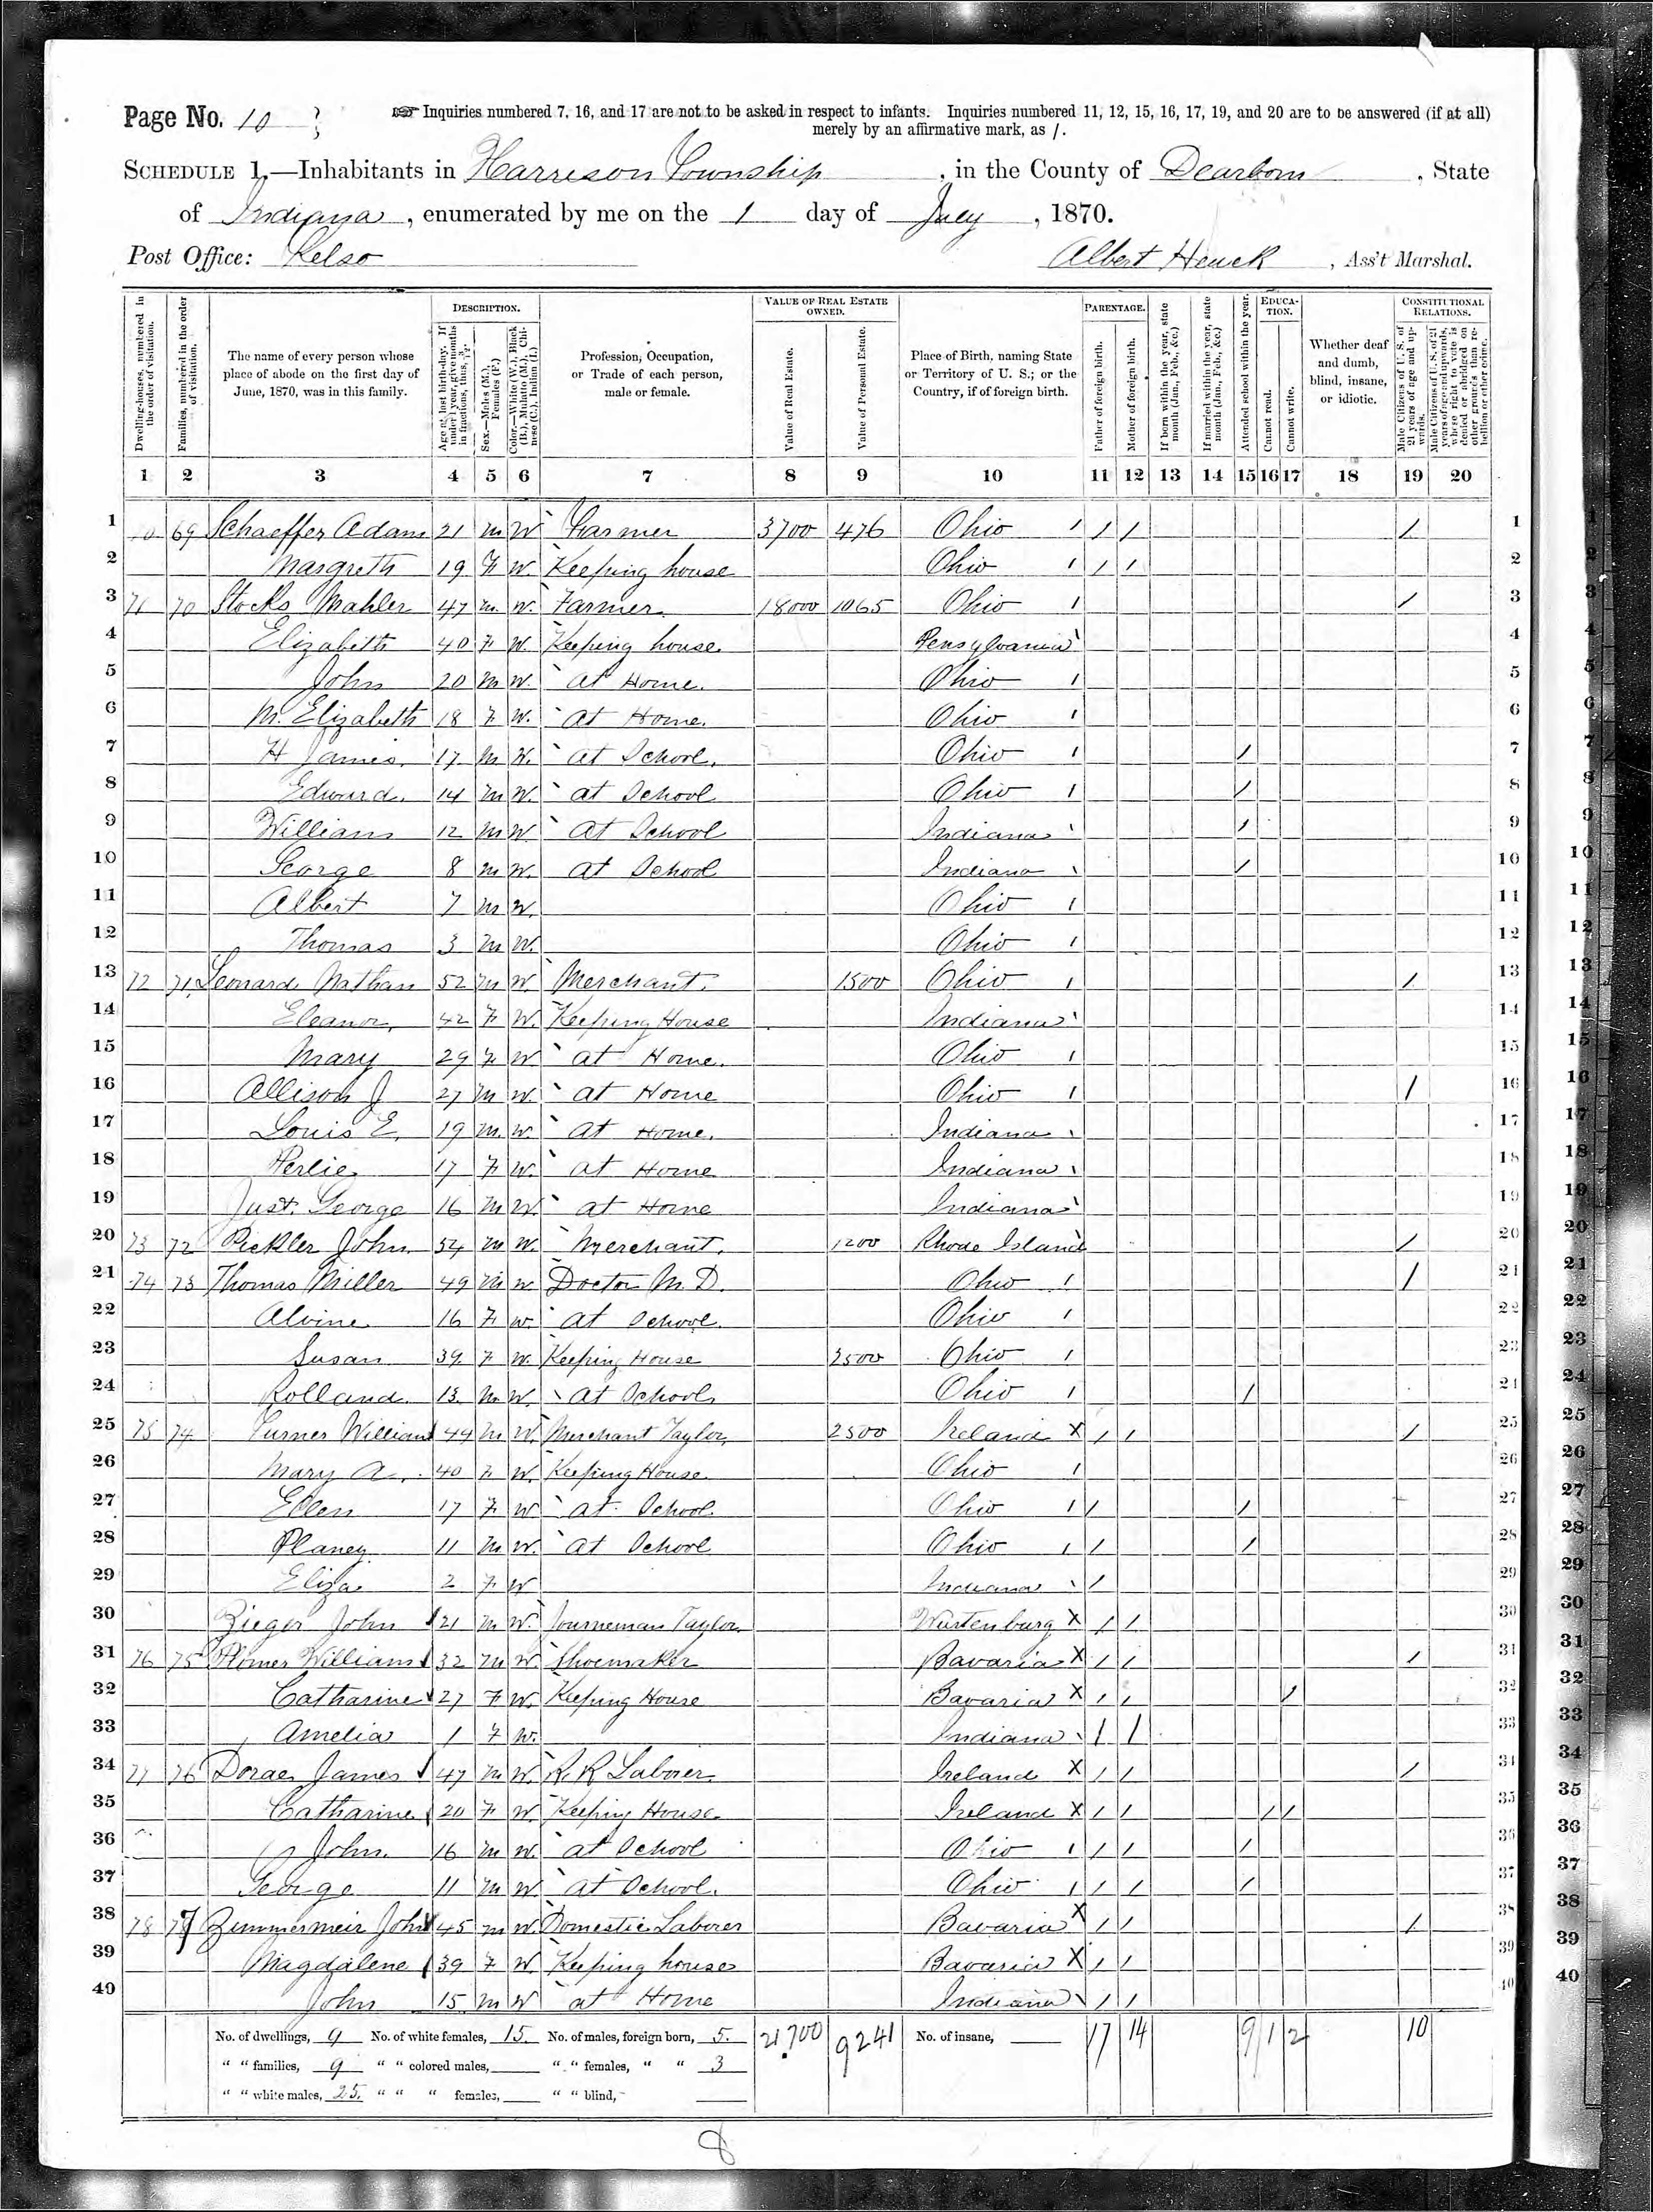 Page No. 10
Inquiries numbered 7, 16, and 17 are not to be asked in respect to infants. Inquiries numbered 11, 12, 15, 16, 17, 19, and 20 are to be answered (if at all)
merely by an affirmative mark, as /.
SCHEDULE 1.—Inhabitants in Harrison Township, in the County of Dearborn, State
of Indiana, enumerated by me on the 1 day of July, 1870.
Post Office: Kelso
Albert Heuck, Ass't Marshal.
Dwelling-houses, numbered in the order of visitation.
Families, numbered in the order of visitation.
The name of every person whose place of abode on the first day of June, 1870, was in this family.
DESCRIPTION.
Age at last birth-day. If under 1 year, give months in fractions, thus, 3/12.
Sex.—Males (M.), Females (F.)
Color.—White (W.), Black (B.), Mulatto (M.), Chinese (C.), Indian (I.)
Profession, Occupation, or Trade of each person, male or female.
VALUE OF REAL ESTATE OWNED.
Value of Real Estate.
Value of Personal Estate.
Place of Birth, naming State or Territory of U. S.; or the Country, if of foreign birth.
PARENTAGE.
Father of foreign birth.
Mother of foreign birth.
If born within the year, state month (Jan., Feb., &c.)
If married within the year, state month (Jan., Feb., &c.)
Attended school within the year.
EDUCATION.
Cannot read.
Cannot write.
Whether deaf and dumb, blind, insane, or idiotic.
CONSTITUTIONAL RELATIONS.
Male Citizens of U. S. of 21 years of age and upwards.
Male Citizens of U. S. of 21 years of age and upwards, whose right to vote is denied or abridged on other grounds than rebellion or other crime.
1 2 3 4 5 6 7 8 9 10 11 12 13 14 15 16 17 18 19 20
1 69 Schaeffer Adam 21 M W Farmer 3700 476 Ohio / / / / 1
2 Margreth 19 F W. Keeping house Ohio / / / 2
3 71 70 Stocks Mahler 47 M. W. Farmer 18000 1065 Ohio / / 3
4 Elizabeth 40 F W. Keeping house. Pensylvania 4
5 John 20 M W. at Home. Ohio / 5
6 M. Elizabeth 18 F W. at Home. Ohio / 6
7 H James. 17 M W. at School. Ohio / / 7
8 Edward. 14 M W. at School Ohio / / 8
9 William 12 M W. at School Indiana / 9
10 George 8 M W. at School Indiana / 10
11 Albert 7 M W. Ohio / 11
12 Thomas 3 M W. Ohio / 12
13 72 71 Leonard Nathan 52 M W. Merchant. 1500 Ohio / / 13
14 Eleanor, 42 F W. Keeping House Indiana 14
15 Mary 29 F W at Home. Ohio / 15
16 Allison J 27 M W. at Home Ohio / / 16
17 Louis E. 19 M. W. at Home. Indiana 17
18 Perlie 17 F W. at Home Indiana 18
19 Just. George 16 M W. at Home Indiana 19
20 73 72 Pickler John. 54 M W. Merchant. 1200 Rhode Island / 20
21 74 73 Thomas Miller 49 M W. Doctor M. D. Ohio / / 21
22 Alvine 16 F W. at School. Ohio / 22
23 Susan 39 F W. Keeping House 2500 Ohio / 23
24 Rolland. 13. M W. at School Ohio / / 24
25 75 74 Turner William 44 M W. Merchant Taylor, 2500 Ireland X / / / 25
26 Mary A. 40 F W. Keeping House. Ohio / 26
27 Ellen 17 F W at School. Ohio / / / 27
28 Planey 11 M W. at School Ohio / / / 28
29 Eliza 2 F W Indiana / 29
30 Zieger John 21 M W. Journeman Taylor. Wurtenburg X / / 30
31 76 75 Plomer William 32 M W. Shoemaker Bavaria X / / / 31
32 Catharine 27 F W. Keeping House Bavaria X / / / 32
33 Amelia 1 F W. Indiana / / 33
34 77 76 Dorae James 47 M W. R. R Laborer. Ireland X / / / 34
35 Catharine 20 F W. Keeping House. Ireland X / / / / 35
36 John. 16 M W. at School Ohio / / / / 36
37 George 11 M W. at School. Ohio / / / / 37
38 78 77 Zimmermeir John 45 M W. Domestic Laborer Bavaria X / / / 38
39 Magdalene 39 F W. Keeping house Bavaria X / / 39
40 John 15 M W at Home Indiana / / 40
No. of dwellings, 9 No. of white females, 15. No. of males, foreign born, 5. 21.700 9241 No. of insane, 17 14 9 1 2 10
" " families, 9 " " colored males, " " females, " " 3
" " white males, 25. " " " females, " " blind,
8